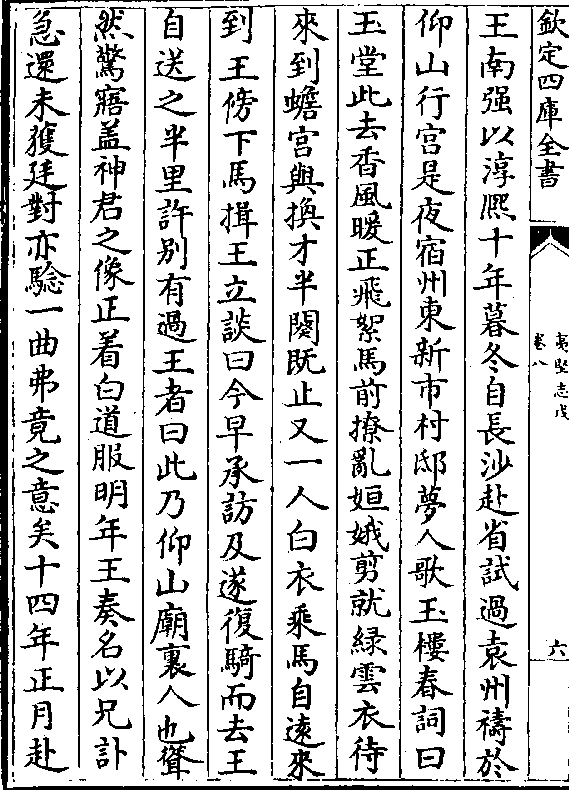 欽定四庫全書
夷堅志戊
卷八
六
王南强以淳熙十年暮冬自長沙赴省試過袁州禱於
仰山行宫是夜宿州東新市村邸夢人歌玉樓春詞曰
玉堂此去香風暖正飛絮馬前撩亂姮娥剪就緑雲衣待
來到蟾宫與換才半闋既止又一人白衣乘馬自逺來
到王傍下馬揖王立談曰今早承訪及遂復騎而去王
自送之半里許别有過王者曰此乃仰山廟裏人也聳
然驚寤盖神君之像正着白道服明年王奏名以兄訃
急還未獲廷對亦驗一曲弗竟之意矣十四年正月赴